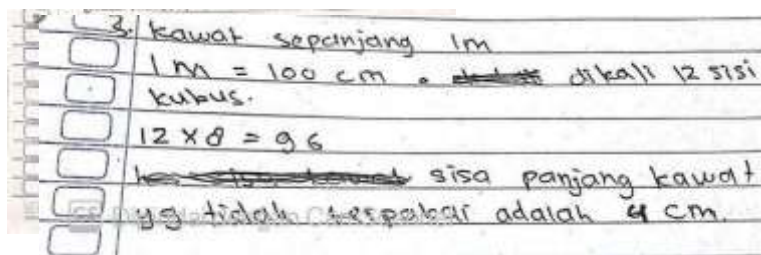 3. Kawat sepanjang 1m
1 m = 100 cm . dikali 12 sisi
kubus.
12 x 8 = 96
sisa panjang kawat
yg tidak terpakai adalah 4 cm.